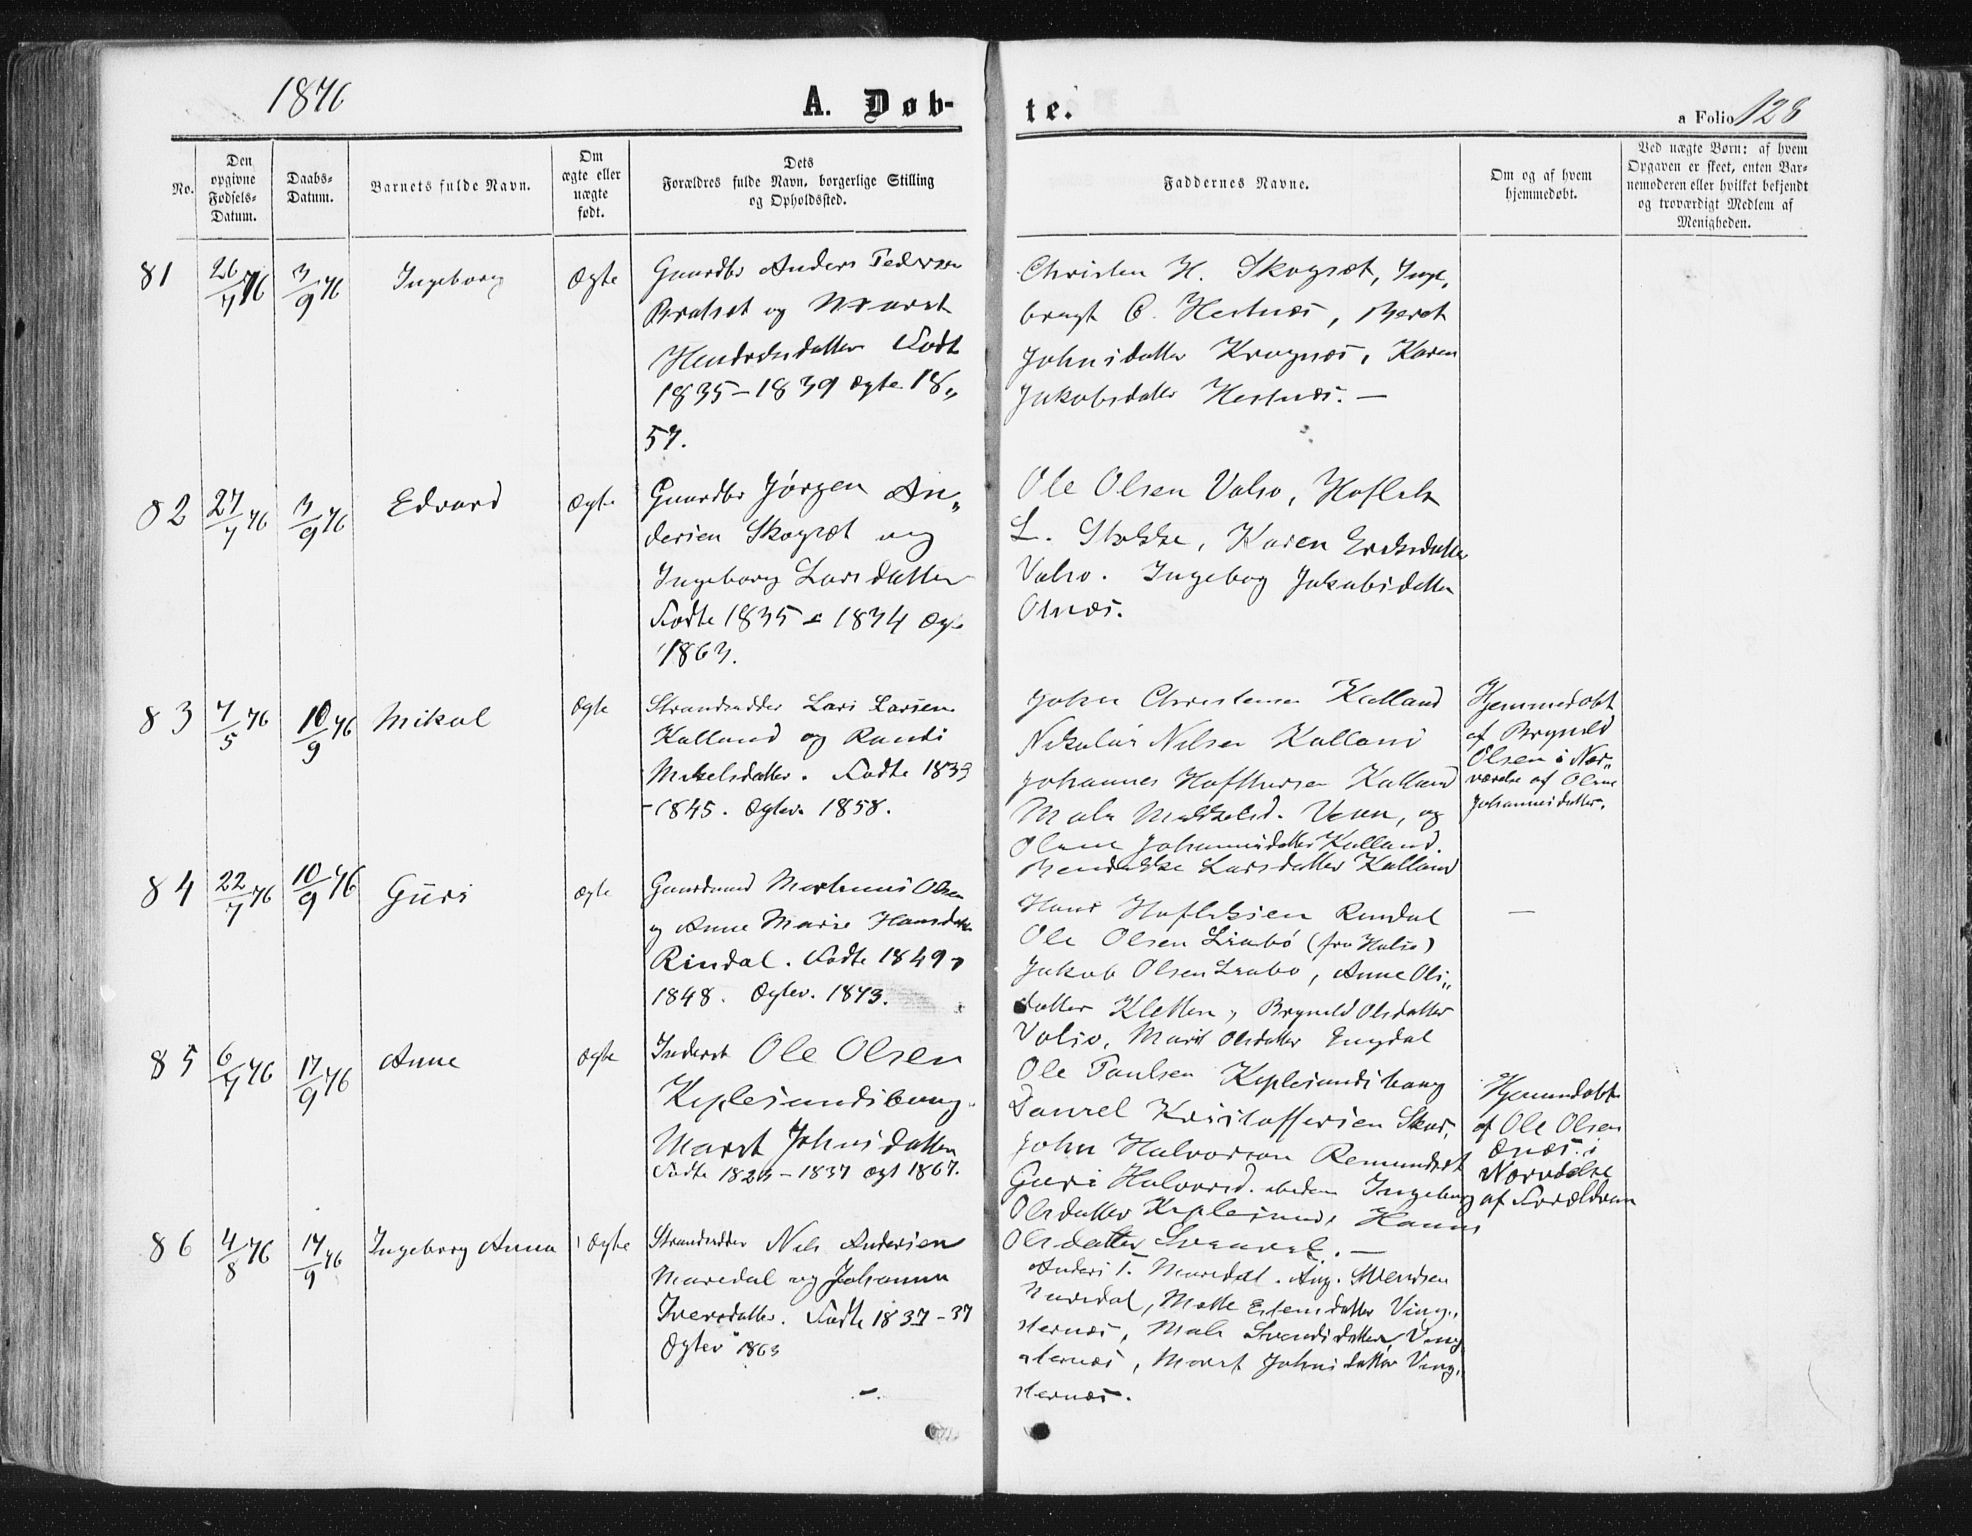 1876
A. Døb-
te.
a Folio 128
No.
Den
opgivne
Fødsels-
Datum.
Daabs-
Datum.
Barnets fulde Navn.
Om
ægte eller
uægte
født.
Dets
Forældres fulde Navn, borgerlige Stilling
og Opholdssted.
Faddernes Navne.
Om og af hvem
hjemmedøbt.
Ved uægte Børn: af hvem
Opgaven er skeet, enten Bar-
nemoderen eller hvilket bekjendt
og troværdigt Medlem af
Menigheden.
81
26/7 76
3/9 76
Ingeborg
Ægte
Gaardbr Anders Pedersen
Bratset og Marit
Hendriksdatter Født
1835-1839 Ægte 18„
57.
Christen H. Skogset, Inge„
brigt C. Hestnæs, Beret
Johnsdatter Krognæs, Karen
Jakobsdatter Hestnæs. —
82
27/7 76
3/9 76
Edvard
Ægte
Gaardbr Jørgen An„
dersen Skogset og
Ingeborg Larsdatter
Fødte 1835 - 1834 Ægt
1863.
Ole Olsen Valsø, Haflek
L. Stokke, Karen Eriksdatter
Valsø. Ingebog Jakobsdatter
Otnæs.
83
7/5 76
10/9 76
Mikal
Ægte
Strandsidder Lars Larsen
Kalland og Randi
Mikelsdatter. Fødte 1833
-1845. Ægtev. 1858.
John Christensen Kalland
Nikolai Nilsen Kalland
Johannes Hafthorsen Kalland
Mali Mikkelsd. Veun, og
Oline Johannesdatter Kalland.
Bendikke Larsdatter Kalland
Hjemmedøbt
af Bryneld
Olsen i Nær„
værelse af Oline
Johannesdatter.
84
22/7 76
10/9 76
Guri
Ægte
Gaardmand Marthinus Olsen
og Anne Marie Hansdatter
Rindal. Fødte 1849 &
1848. Ægtev. 1873.
Hans Hafleksien Rindal
Ole Olsen Liabø (fra Halse)
Jakob Olsen Liabø, Anne Ols„
datter Kletten, Bryneld Olsdatter
Valsø, Marit Olsdatter Engdal
—
85
6/7 76
17/9 76
Anne
Ægte
Inderst Ole Olsen
Keplesundshaug.
Marit Johnsdatter
Fødte 1823-1837 Ægt 1867.
Ole Paulsen Keplesundshaug
Daniel Kristoffersen Skar,
John Halvorsen Remundset
Guri Halvorsd. ibidem Ingeborg
Olsdatter Keplesund, Hanna
Olsdatter Svearet. —
Hjemmedøbt
af Ole Olsen
Ænæs i
Nærvælse
af Forældrene
86
4/8 76
17/9 76
Ingeborg Anna
Ægte
Strandsidder Nils Andersen
Moredal og Johanna
Iversdatter. Fødte 1837-37
Ægtev 1863
—.
Anders T. Moredal. Aug. Svendsen
Moredal, Mette Estensdatter Ving„
sternæs, Mali Svendsdatter Ving
sternæs, Marit Johnsdatter Ving„
sternæs.